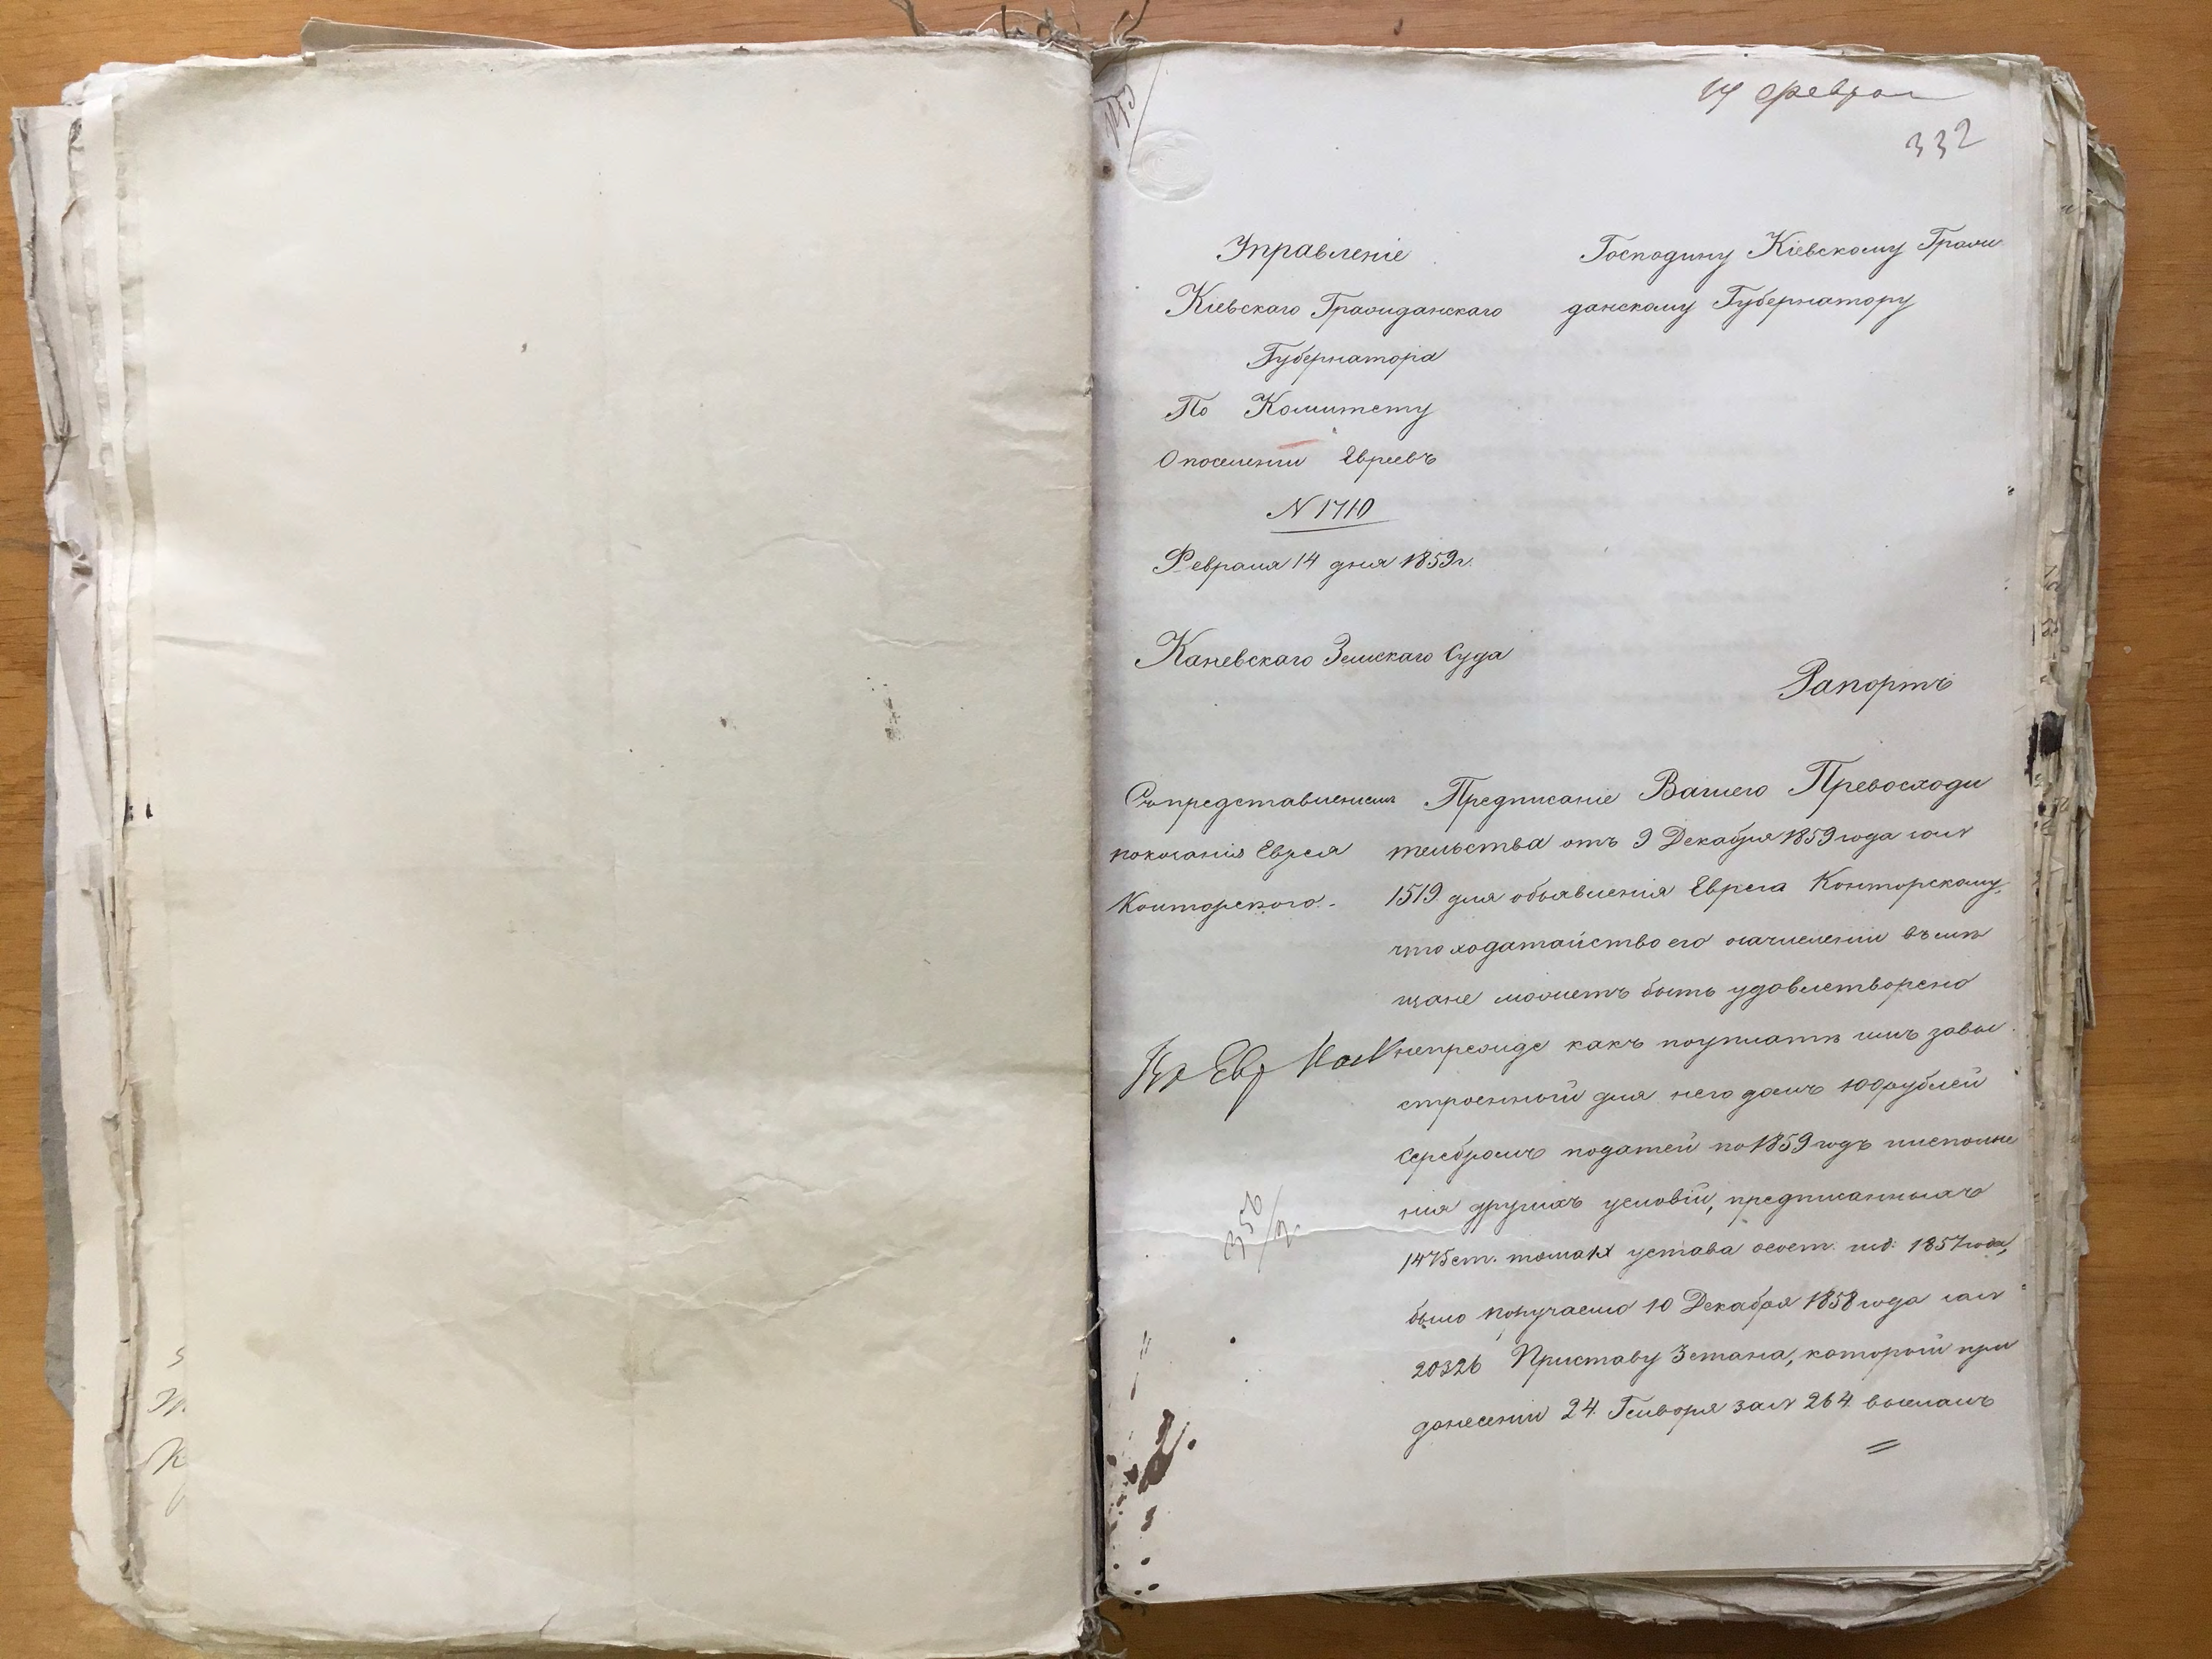 14 феврал
332
Управленіе
Кіевскаго Гражданскаго
Губернатора
По Комитету
О поселеніи Евреевъ
N 1710
Февраля 14 дня 1859 г.
Каневскаго Земскаго Суда
Господину Кіевскому Граж
данскому Губернатору
Рапортъ
Съ представленіемъ
показанія Еврея
Конторского.
350/2
Предписаніе Вашего Превосходи
тельства отъ 9 Декабря 1859 года за №
1519 для объявленія Еврея Конторскому,
что ходатайство его о зачисленіи въ мѣ
щане можетъ быть удовлетворено
непрежде какъ поуплатѣ имъ завы
строенной для него домъ 100 рублей
серебромъ податей по 1859 годъ и исполне
нія другихъ условій, предписанныхъ
1475 ст. тома IX устава о сост. изд. 1857 года,
было получаемо 10 Декабря 1858 года за №
20326 Приставу 3 стана, которой при
донесеніи 24 Генворя за № 264 выслалъ